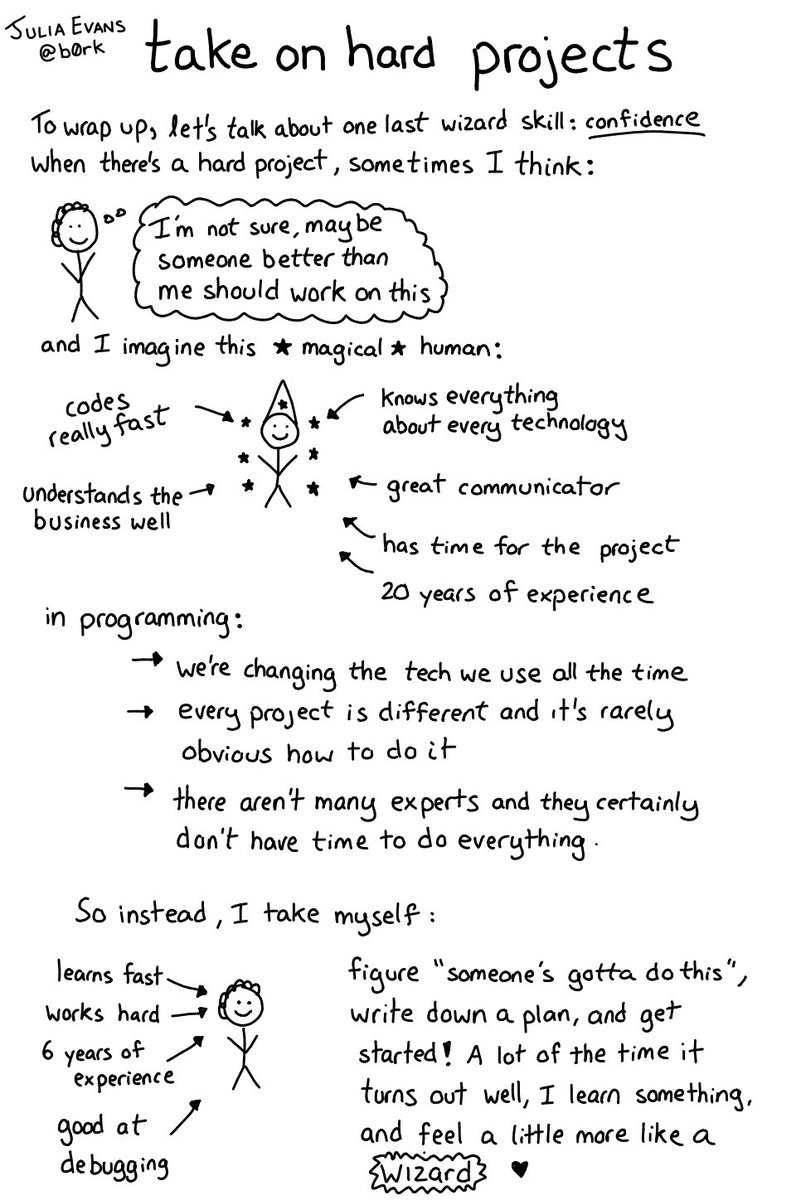 JULIA EVANS
@b0rk
take on hard projects
To wrap up, let's talk about one last wizard skill: confidence
when there's a hard project, sometimes I think:
I'm not sure, maybe
someone better than
me should work on this
and I imagine this ★ magical ★ human:
codes
really fast
knows everything
about every technology
understands the
business well
great communicator
has time for the project
20 years of experience
in programming:
→ we're changing the tech we use all the time
→ every project is different and it's rarely
obvious how to do it
→ there aren't many experts and they certainly
don't have time to do everything.
So instead, I take myself:
learns fast
works hard
6 years of
experience
good at
debugging
figure "someone's gotta do this",
write down a plan, and get
started! A lot of the time it
turns out well, I learn something,
and feel a little more like a
wizard ♥